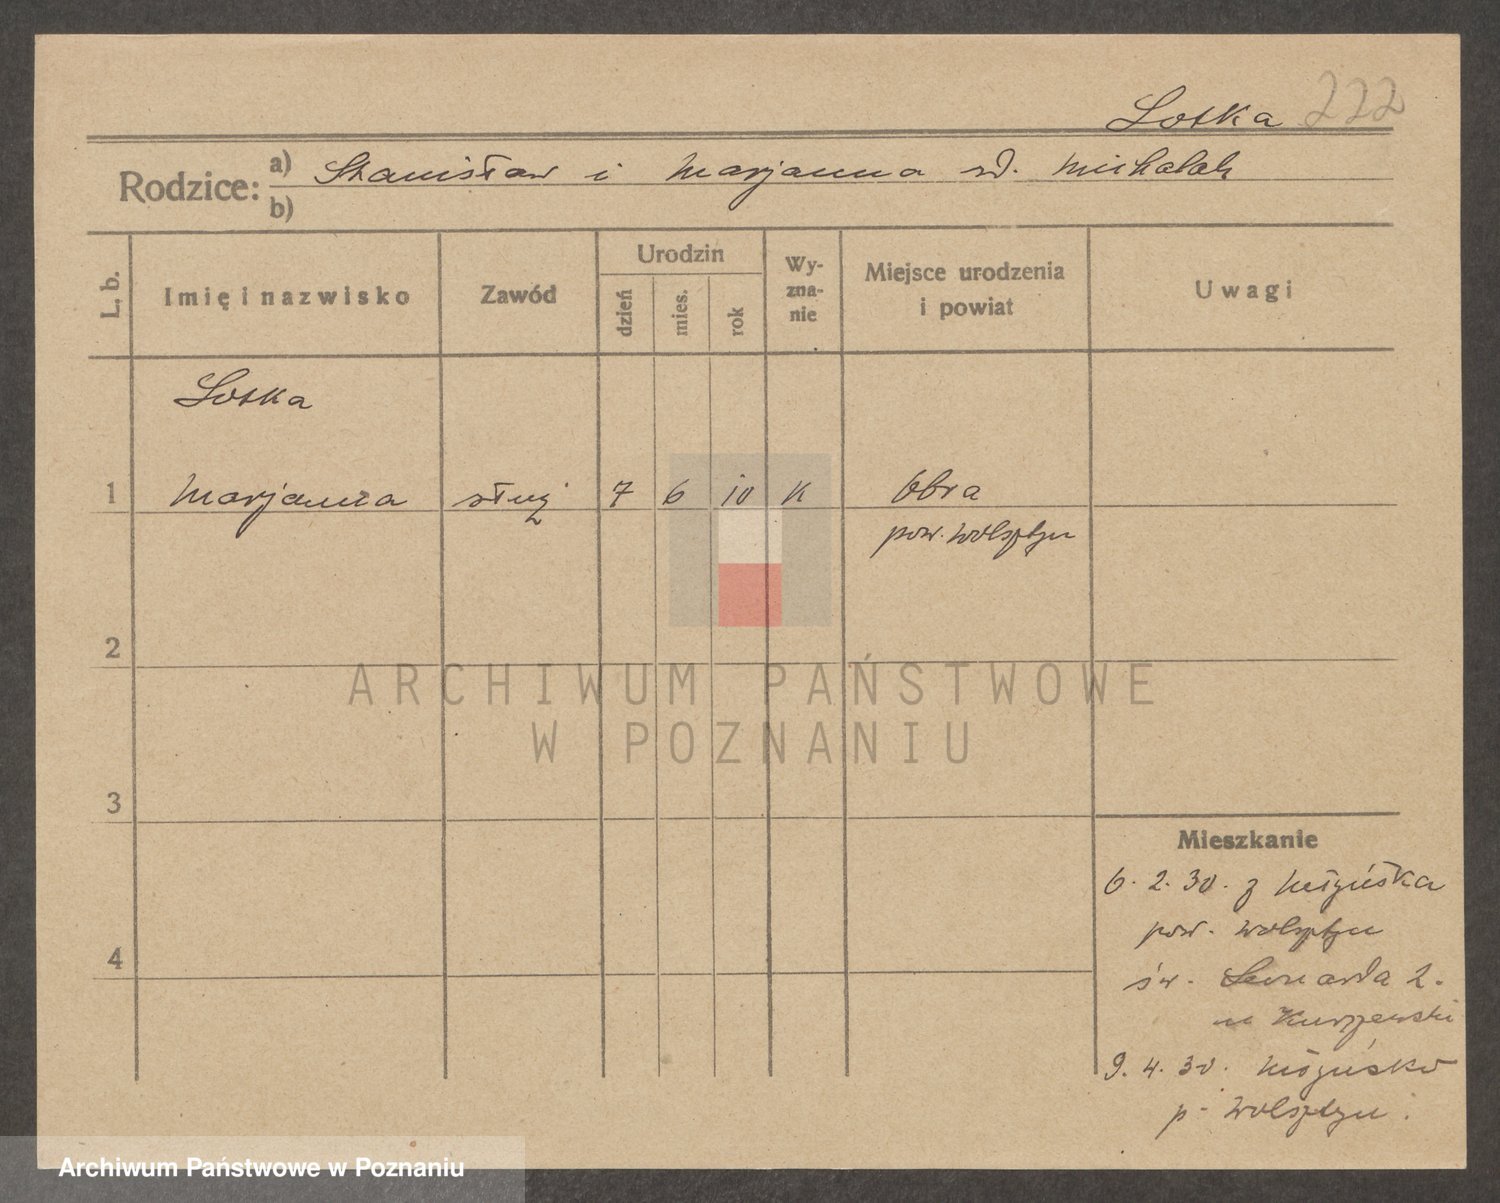 Lotka 222
Rodzice: a) Stanisław i Marjanna zd. Michalak
b)
L. b.
Imię i nazwisko
Zawód
Urodzin
dzień
mies.
rok
Wy-
zna-
nie
Miejsce urodzenia
i powiat
Uwagi
Lotka
1 Marjanna służ 7 6 10 K Obra
pow. Wolsztyn
2
ARCHIWUM PAŃSTWOWE
W POZNANIU
3
Mieszkanie
6. 2. 30. z
pow. Wolsztyn
4
św. Leonarda 2.
u Kurzewski
9. 4. 30.
p. Wolsztyn.
Archiwum Państwowe w Poznaniu